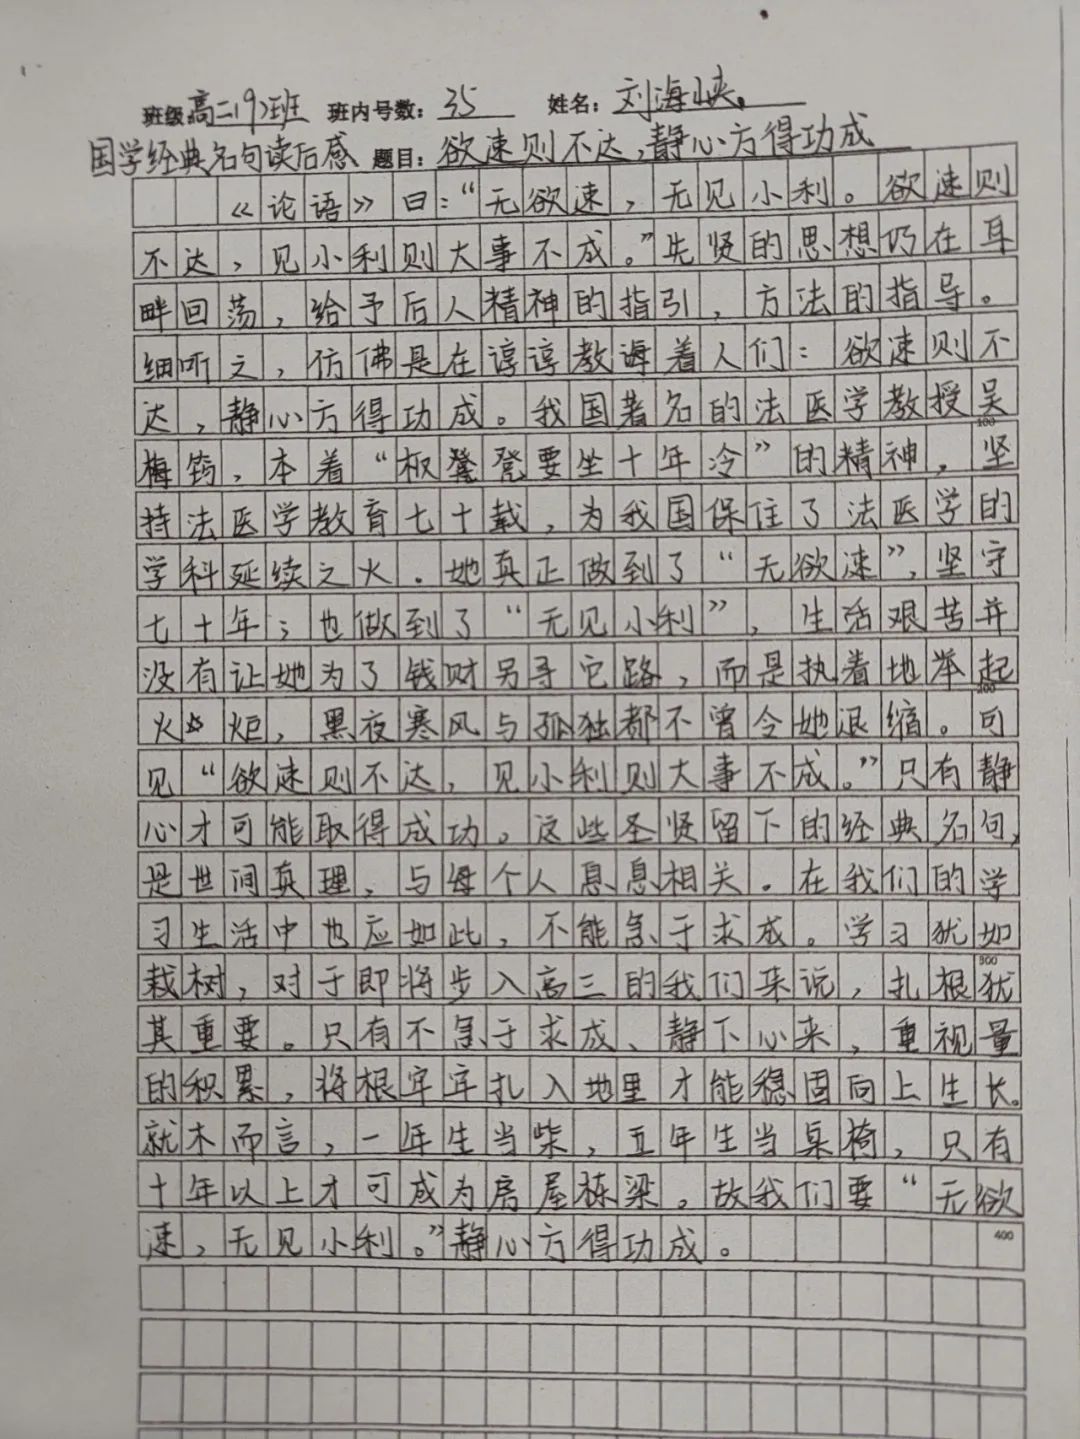 班级:高二19班 班内号数:35 姓名:刘海峡
国学经典名句读后感 题目:欲速则不达,静心方得功成
《论语》曰:“无欲速,无见小利。欲速则
不达,见小利则大事不成。”先贤的思想仍在耳
畔回荡,给予后人精神的指引,方法的指导。
细听之,仿佛是在谆谆教诲着人们:欲速则不
达,静心方得功成。我国著名的法医学教授吴
100
梅筠,本着“板凳要坐十年冷”的精神,坚
持法医学教育七十载,为我国保住了法医学的
学科延续之火.她真正做到了“无欲速”,坚守
七十年;也做到了“无见小利”,生活艰苦并
没有让她为了钱财另寻它路,而是执着地举起
200
火炬,黑夜寒风与孤独都不曾令她退缩。可
见“欲速则不达,见小利则大事不成。”只有静
心才可能取得成功。这些圣贤留下的经典名句,
是世间真理,与每个人息息相关.在我们的学
习生活中也应如此,不能急于求成。学习犹如
300
栽树,对于即将步入高三的我们来说,扎根犹
其重要。只有不急于求成、静下心来,重视量
的积累,将根牢牢扎入地里才能稳固向上生长。
就木而言,一年生当柴,五年生当桌椅,只有
十年以上才可成为房屋栋梁。故我们要“无欲
速,无见小利。”静心方得功成。
400